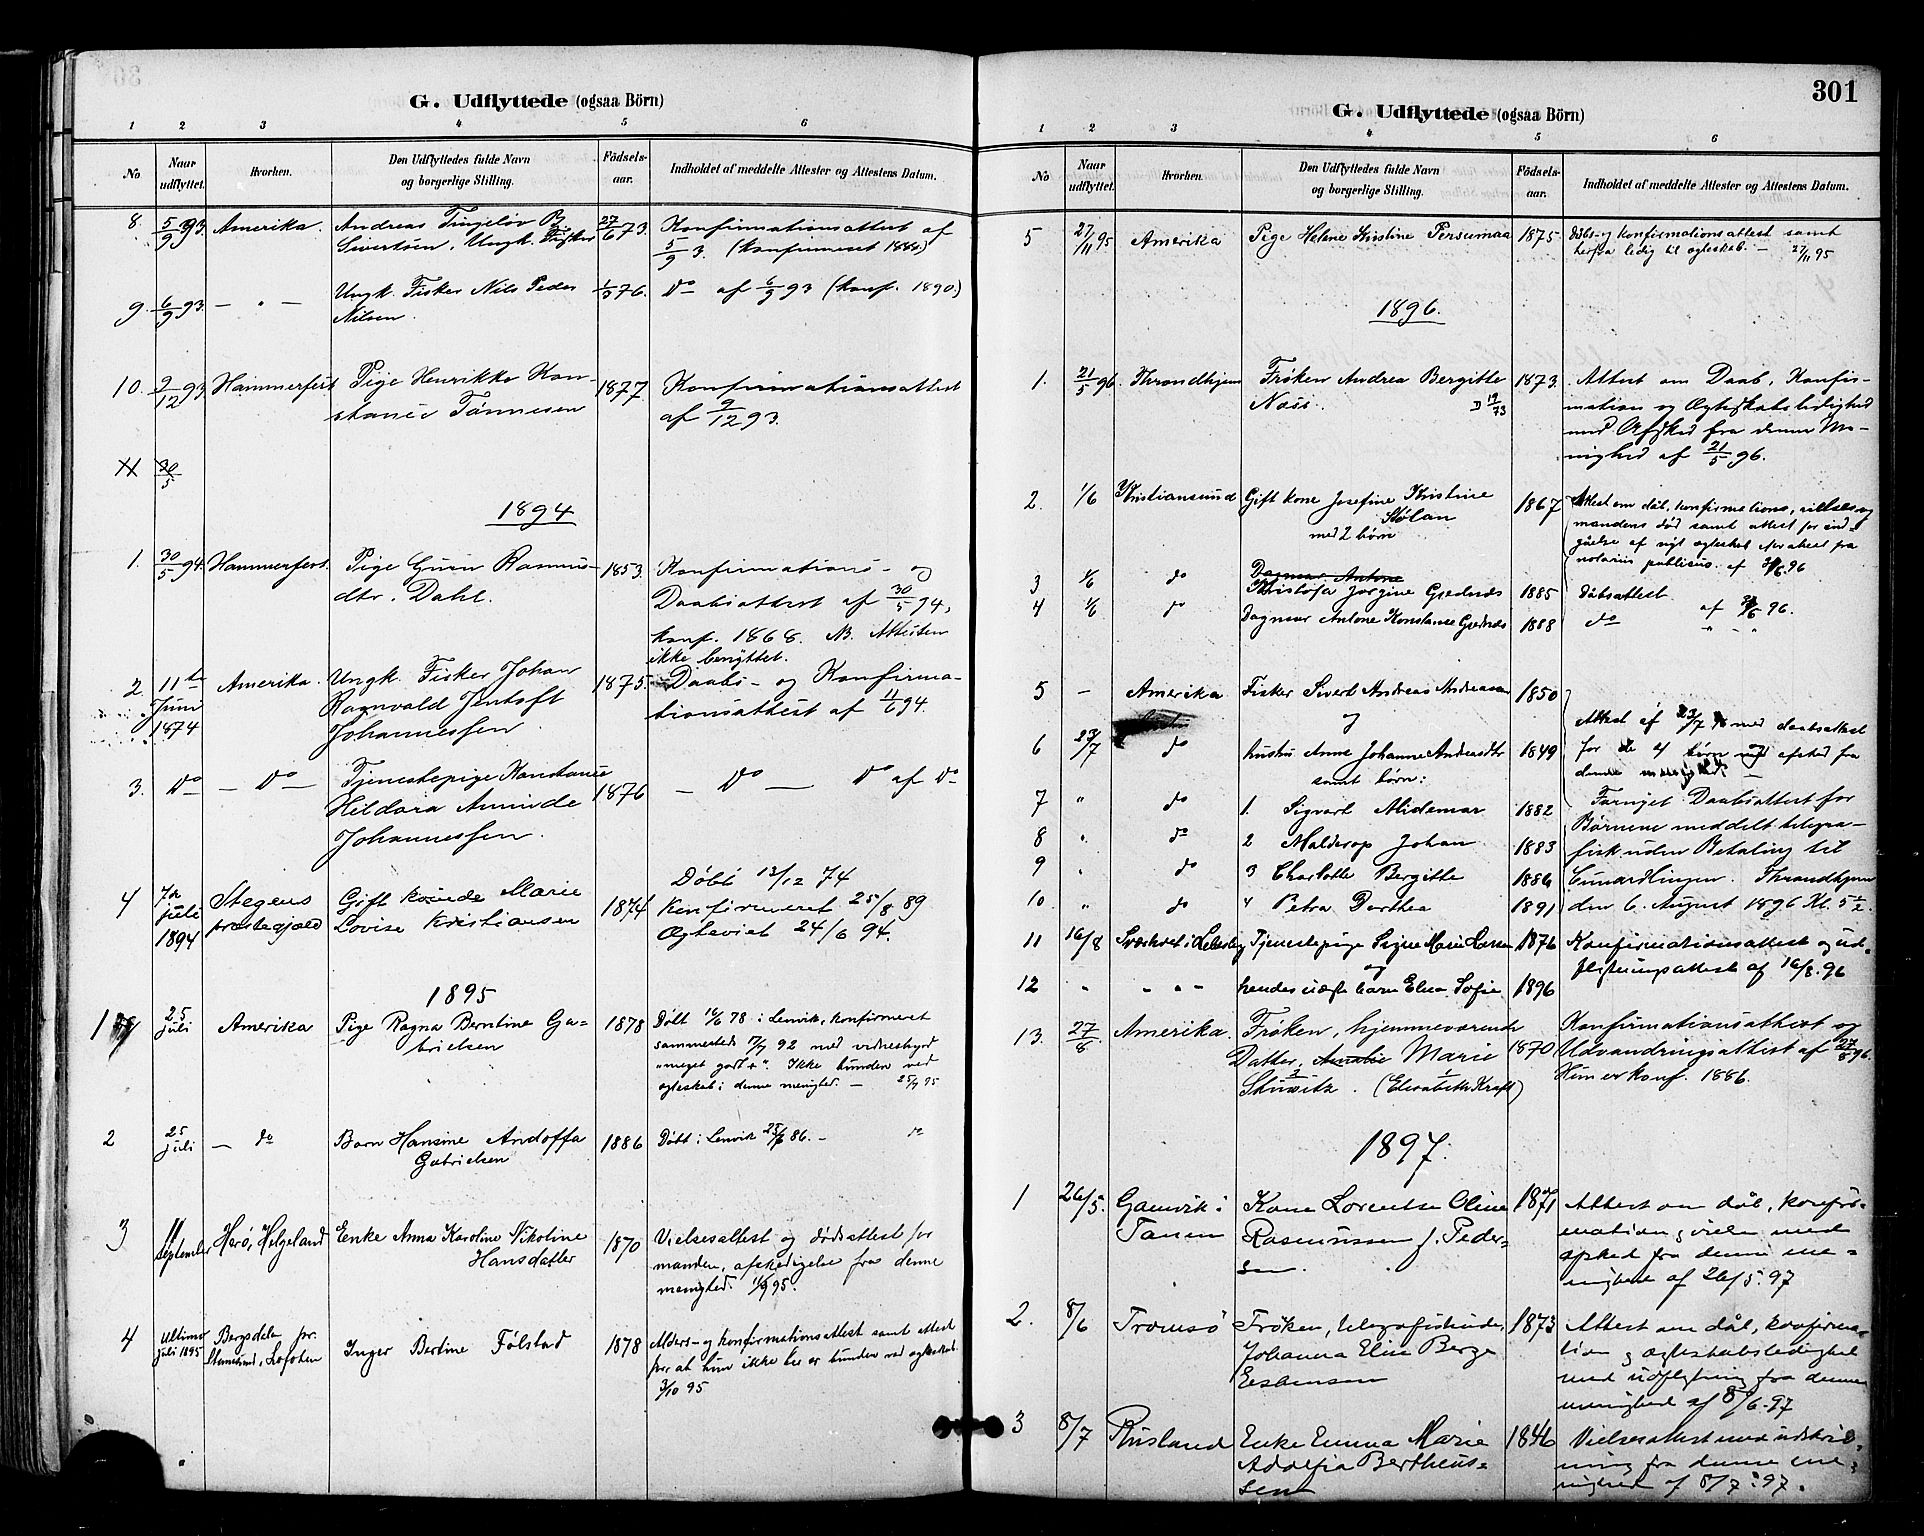 G. Udflyttede (ogsaa Börn)
1 2 3 4 5 6
No Naar udflyttet. Hvorhen. Den Udflyttedes fulde Navn og borgerlige Stilling. Födsels-aar. Indholdet af meddelte Attester og Attestens Datum.
8. 5/9 93. Amerika. Andreas Tingelöv B. 27/6 73. Konfirmationsattest af
Sivertsen, Ungk. Fisker 5/9 3. (konfirmeret 1888)
9. 6/9 93. — " — Ungk. Fisker Nils Peder 1/3 76. Do af 6/9 93 (konf. 1890.)
Nilsen.
10. 9/12 93 Hammerfest Pige Henrikke Kon- 1877 Konfirmationsattest
stance Tönnesen af 9/12 93.
11 30/5
1894
1. 30/5 94. Hammerfest. Pige Gurin Rasmus- 1853. Konfirmations- og
dtr. Dahl. Daabsattest af 30/5 94,
konf. 1868. NB. Attesten
ikke benyttet.
2. 11te Juni 1874 Amerika. Ungk. Fisker Johan 1875. Daabs- og Konfirma-
Ragnvald Jentoft tionsattest af 11/6 94.
Johannessen
3. Do — Do — Tjenestepige Konstance 1876 — Do — Do af Do
Hildora Aminde
Johannessen.
4 7de juli 1894 Stegens præstegjæld Gift kvinde Marie 1874 Döbt 13/12 74
Lovise Kristiansen Konfirmeret 25/8 89
Ægteviet 24/6 94.
1895
1 25 juli Amerika Pige Ragna Berntine Ga- 1878 Döbt 16/6 78 i Lenvik, konfirmeret
brielsen sammesteds 17/7 92 med vidnesbyrd
"meget godt +". Ikke bunden ved
egteskab i denne menighed. — 25/7 95
2 25 juli — do Barn Hansine Andoffa 1886 Döbt i Lenvik 25/6 86. — do
Gabrielsen
3 11 September Herö, Helgeland Enke Anna Karoline Nikoline 1870 Vielsesattest og dödsattest for
Hansdatter manden, afskedigelse fra denne
menighed. 11/9 95.
4 Ultimo juli 1895 Bergsdalen pr. Stamsund, Lofoten Inger Bertine Fölstad 1878 Alders- og konfirmationsattest samt attest
for at hun ikke her er bunden ved egteskab.
3/10 95
301
G. Udflyttede (ogsaa Börn)
1 2 3 4 5 6
No Naar udflyttet. Hvorhen. Den Udflyttedes fulde Navn og borgerlige Stilling. Födsels-aar. Indholdet af meddelte Attester og Attestens Datum.
5 27/11 95 Amerika Pige Helene Kristine Persumaa 1875 Dåbs- og konfirmationsattest samt
herfra ledig til egteskab. — 27/11 95
1896.
1. 21/5 96. Throndhjem Fröken Andrea Bergitte 1873 Attest om Daab, Konfir-
Næss. D 19/73 mation og Ægteskabsledighed
med Afsked fra denne Me-
nighed af 21/5 96.
2. 1/6 Kristiansund Gift kone Josefine Kristine 1867 Attest om dåb, konfirmations, vielses og
Stölan mandens död samt attest for ind-
med 2 börn gåelse af nyt egteskab
notarius publicus. af 1/6 96
Dagmar Antone
3 1/6 do Kristofa Jorgine Grednæs 1885 Dåbsattest
4 1/6 do Dagmar Antone Konstance Grednæs 1888 do af 96.
5 — Amerika Fisker Sivert Andreas Andreasen 1850
og Attest af 23/7 96 med daabsattest
6 23/7 do hustru Anne Johanne Andersdtr 1849 for de 4 börn og afsked fra
samt börn: denne menighed —
7 " do 1. Sigvart Aldemar 1882 Fornyet Daabsattest for
8 " do 2 Malderop Johan 1883 Börnene meddelt telegra-
9 " do 3 Charlotte Bergitte 1886 fisk uden Betaling til
10. " do 4 Petra Dorthea 1891 Cunardlinjen. Throndhjem
den 6. August 1896 Kl. 5 1/2.
11 16/8 Sværholt i Lebesby Tjenestepige Signe Marie Larsen 1876 Konfirmationsattest og ud-
og flytningsattest af 16/8. 96
12 " " " hendes uægte barn Elna Sofie 1896
13. 27/8 Amerika. Fröken, hjemmeværende 1870 Konfirmationsattest og
Datter, Amalie Marie Udvandringsattest af 27/8 96.
Stuwitz. (Elisabeth Kraft) Hun er konf. 1886.
1897.
1 26/5. Gamvik i Tanen Kone Lorentse Oline 1871 Attest om dåb, konfir-
Rasmussen f. Peder- mation, vielse med
sen. afsked fra denne me-
nighed af 26/5. 97
2. 8/6 Tromsö Fröken, telegrafistinde, 1873 Attest om dåb, konfirma-
Johanna Elise Berge tion og egteskabsledighed
Esbensen med udflytning fra denne
menighed af 8/6-97
3 8/7 Rusland Enke Emma Marie 1846 Vielsesattest med udskriv-
Adolfia Bertheus- ning fra denne me-
sen nighed af 8/7. 97.